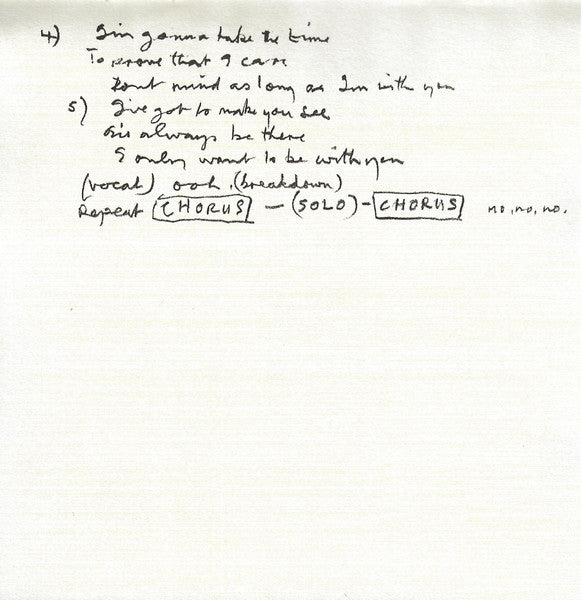 4) I'm gonna take the time
To prove that I care
Dont mind as long as I'm with you
5) I've got to make you see
I'll always be there
I only want to be with you
(vocal) ooh, (breakdown)
Repeat CHORUS — (SOLO) - CHORUS no, no, no.